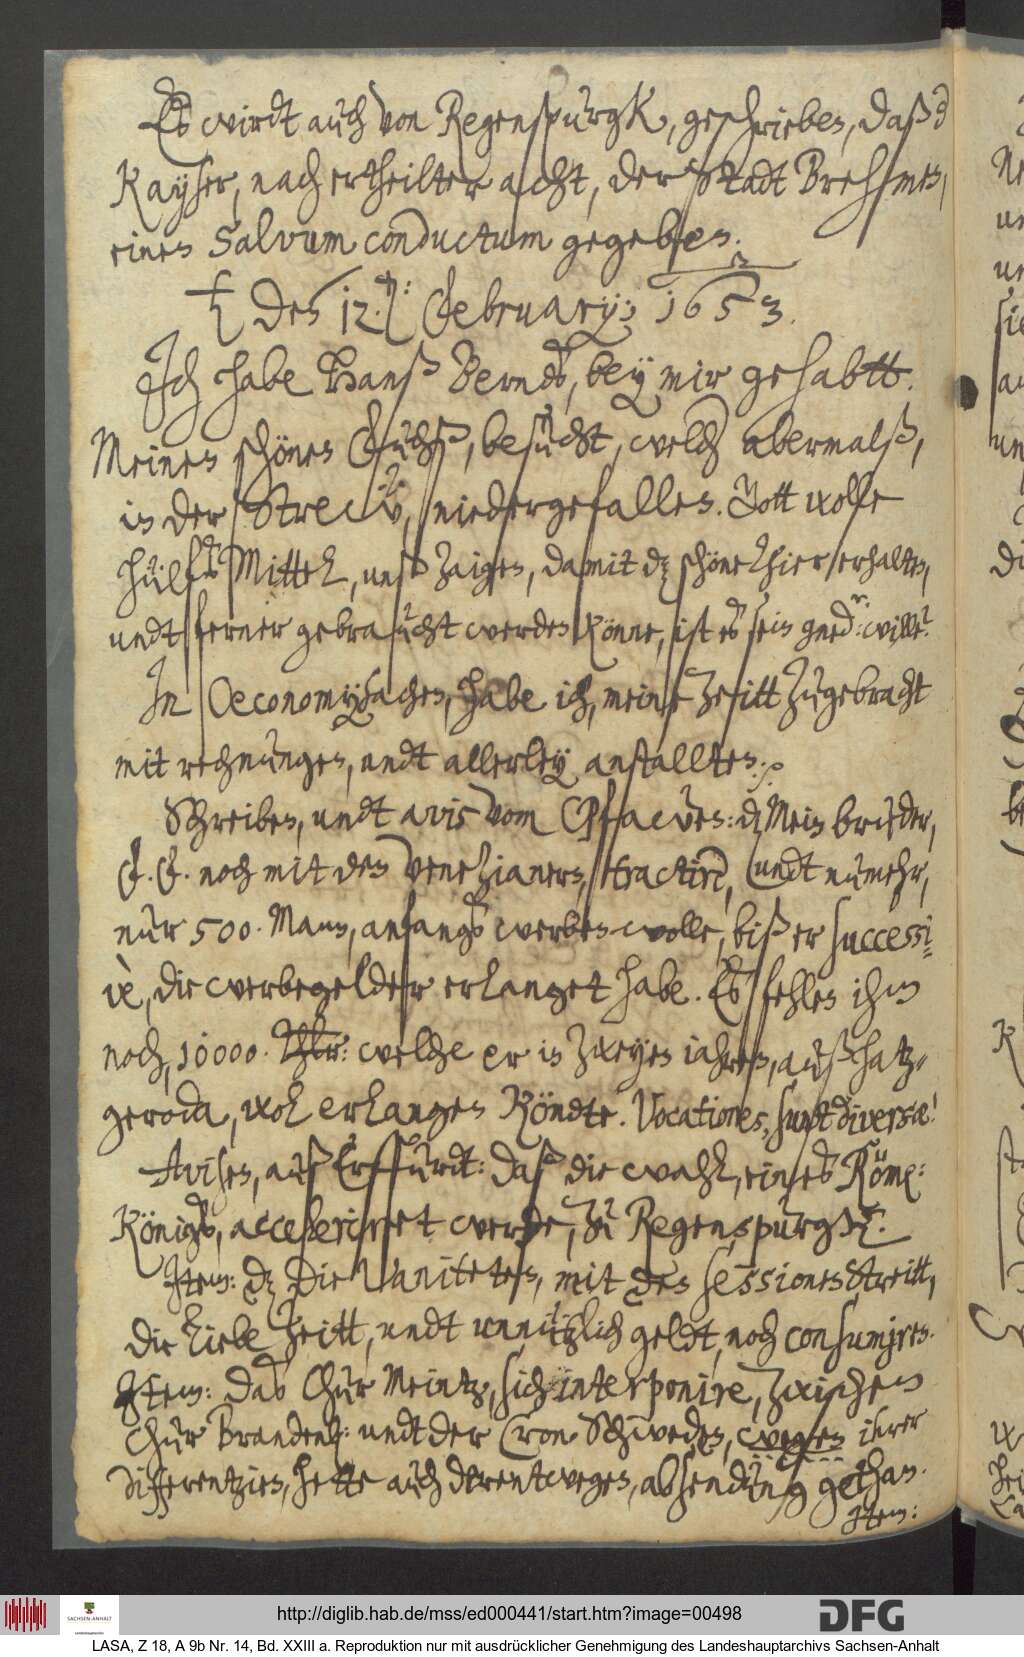 Es wirdt auch von Regenspurgk, geschrieben, daß d
Kayser, nach ertheilter acht, der Stadt Brehmen,
einen Salvum conductum gegeben.
den 12. February; 1653.
Ich habe Hanß Berndt, bey mir gehabtt.
Meinen schönen Fuchß, besucht, welch abermalß,
in der Strew, niedergefallen. Gott wolle
hülfs Mittel, unß zaigen, damit dz schöne Thier erhalten,
undt ferner gebraucht werden könne, ist es sein gned: wille.
In Oeconomysachen, habe ich, meine Zeitt zugebracht
mit rechnungen, undt allerley anstallten.
Schreiben, undt avis vom Pfawen: dz Mein bruder,
F. F. noch mit den Venezianern, tractire, undt numehr,
nur 500. Mann, anfangs werben wolle, biß er successi-
ve, die werbegelder erlanget habe. Es fehlen ihm
noch, 10000. Thlr: welche er in zweyen iahren, auß hatz-
geroda, wol erlangen köndte. Vocationes, sunt diversæ!
Avisen, auß Erffurdt: daß die wahl, eines Röm:
Königs, acceleriret werde, zu Regenspurgk.
Item: dz die Vaniteten, mit den sessionsstreitt,
die liebe Zeitt, undt unnützlich geldt, noch consumiren.
Item: das Chur Meintz, sich interponire, zwischen
Chur Brandenb: undt der Cron Schweden, wegen ihrer
differentzien, hette auch derentwegen, absendung gethan.
Item:
http://diglib.hab.de/mss/ed000441/start.htm?image=00498
SACHSEN-ANHALT
DFG
LASA, Z 18, A 9b Nr. 14, Bd. XXIII a. Reproduktion nur mit ausdrücklicher Genehmigung des Landeshauptarchivs Sachsen-Anhalt